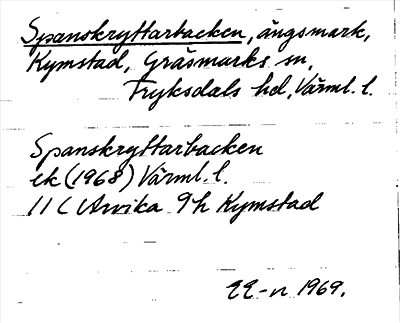 Spanskryttarbacken, ängsmark,
Kymstad, Gräsmarks sn,
Fryksdals hd, Värml. l.
Spanskryttarbacken
ek (1968) Värml. l.
11 C Arvika 9h Kymstad
1969.